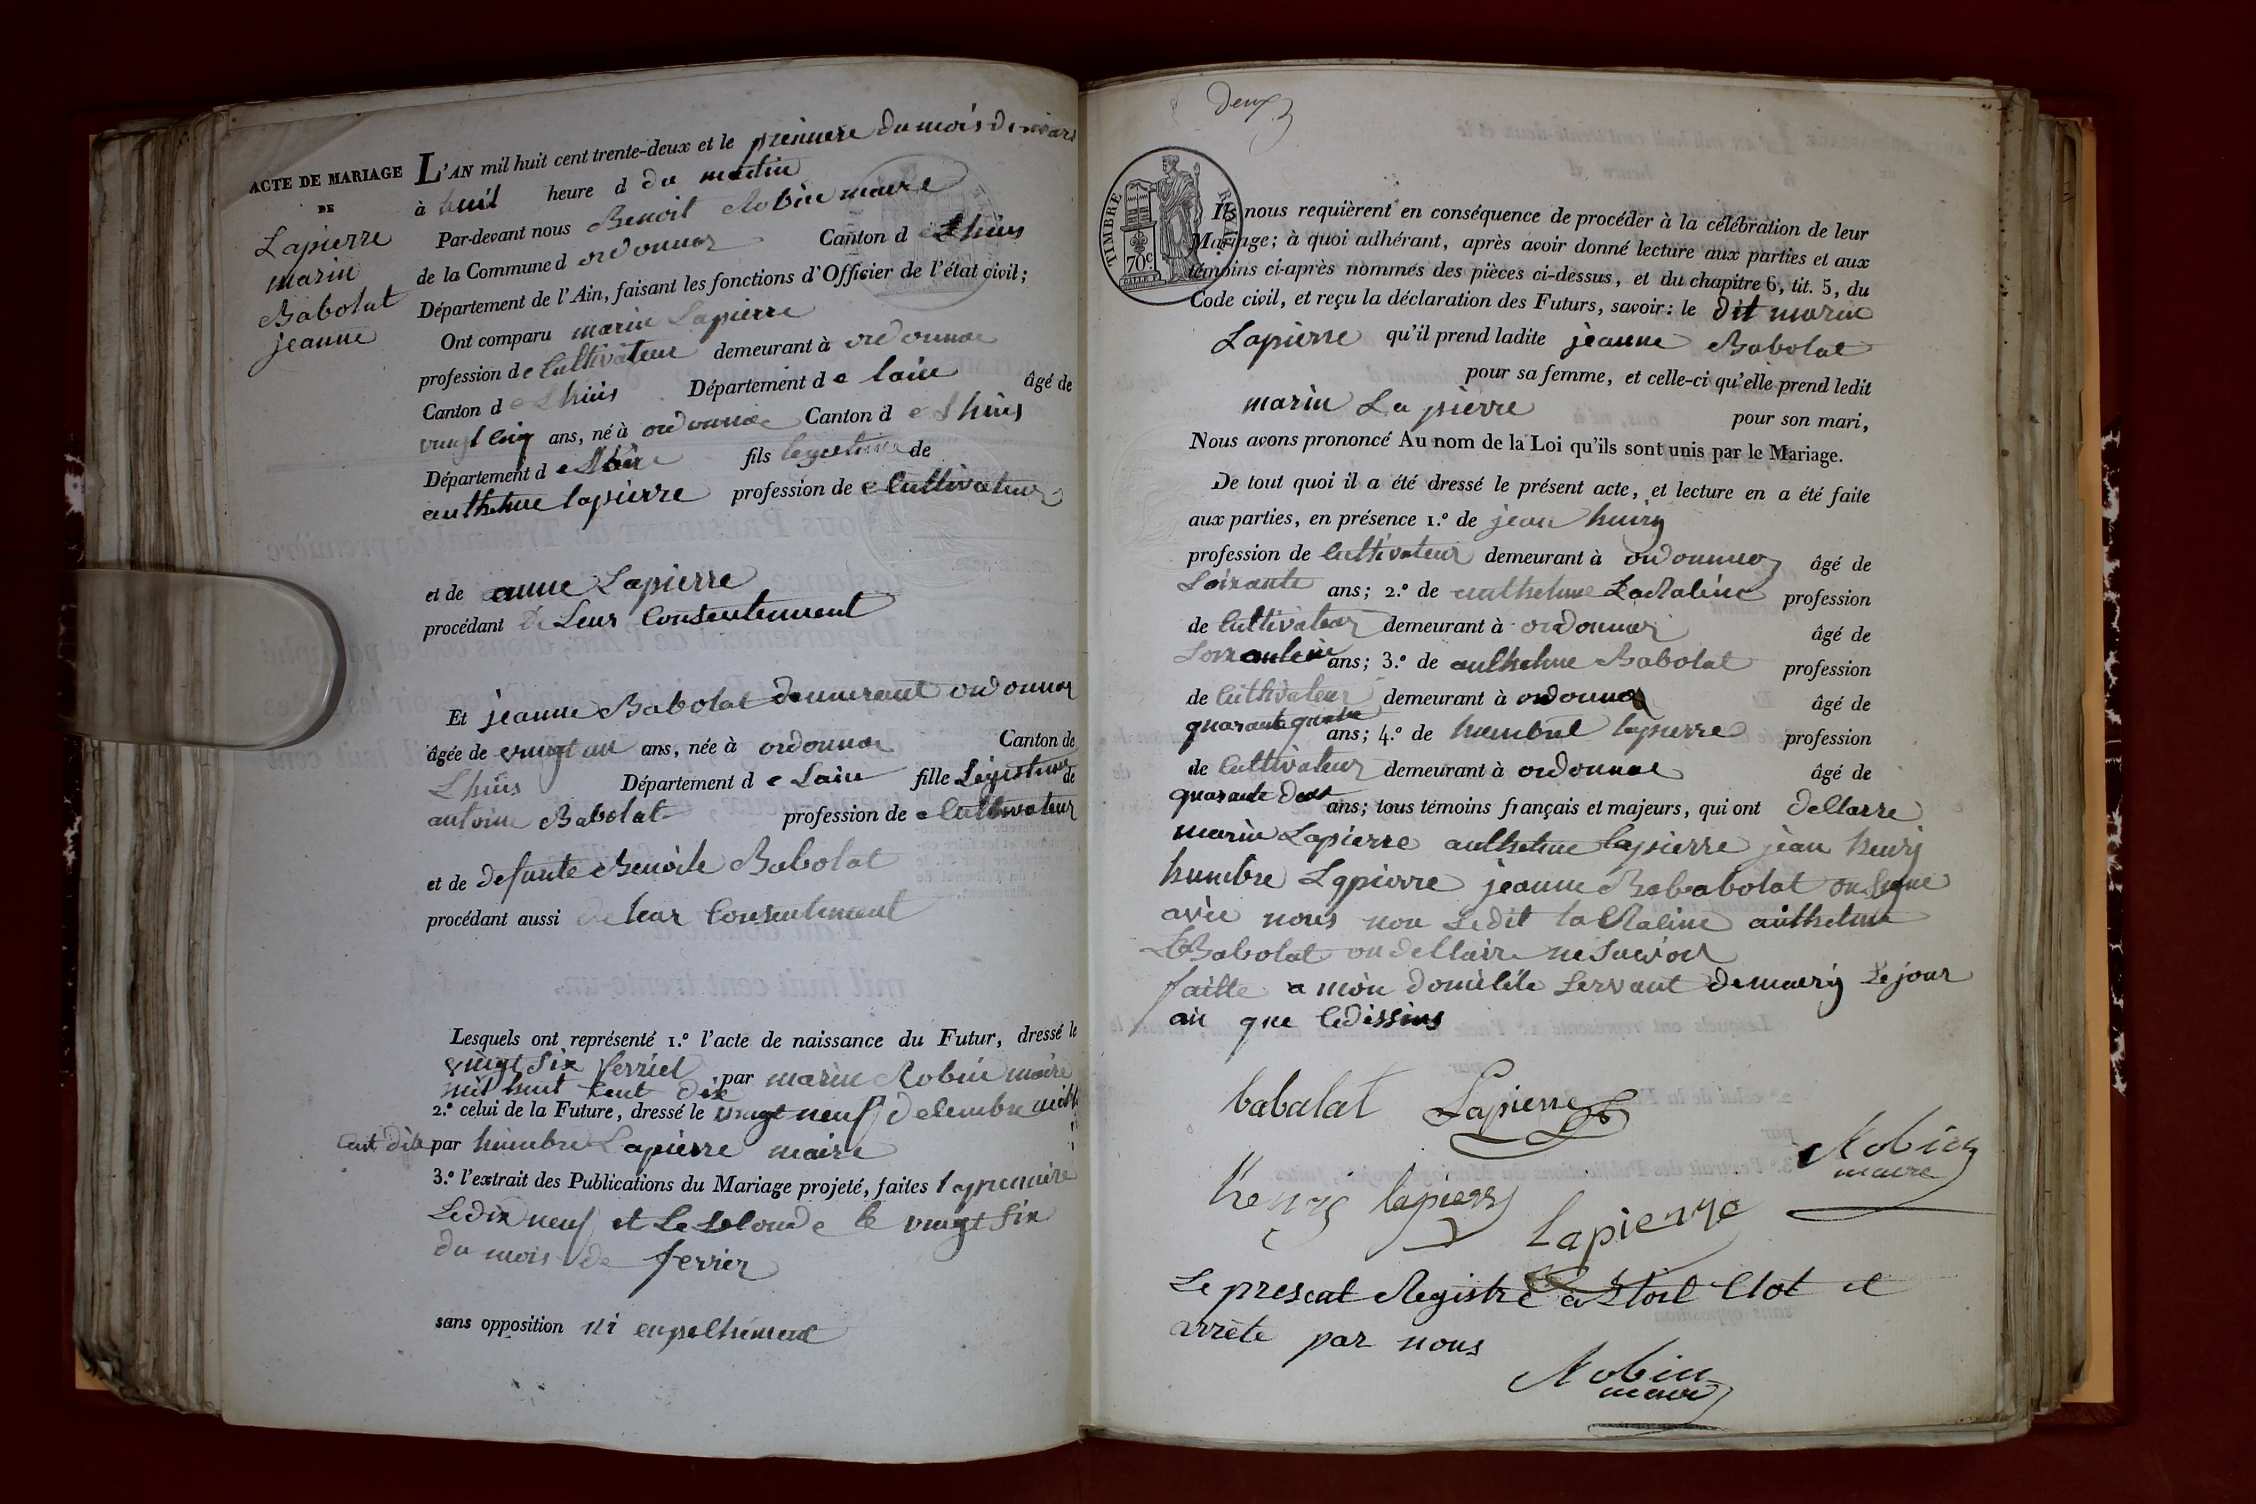 ACTE DE MARIAGE
DE
Lapierre
marin
Babolat
jeanne
L'AN mil huit cent trente-deux et le premiere du mois de mars
à huit heure d du matin
Par-devant nous Benoit Robin maire
de la Commune d ordonnas Canton d e Lhuis
Département de l'Ain, faisant les fonctions d'Officier de l'état civil;
Ont comparu marin Lapierre
profession de Cultivateur demeurant à ordonnas
Canton d e Lhuis Département d e lain âgé de
vingt cinq ans, né à ordonnas Canton d e Lhuis
Département d e fils legetime de
anthelme lapierre profession de e Cultivateur
et de anne Lapierre
procédant de Leur Consentement
Et jeanne Babolat demeurant ordonnas
âgée de vingt un ans, née à ordonnas Canton de
Lhuis Département d e Lain fille Legetime de
antoine Babolat profession de e Cultivateur
et de defunte Benoite Babolat
procédant aussi de leur Consentement
Lesquels ont représenté 1.º l'acte de naissance du Futur, dressé le
vingt six ferriel par marin Robin maire
mil huit Cent dix
2.º celui de la Future, dressé le vingt neuf decembre
Cent dix par humbre Lapierre maire
3.º l'extrait des Publications du Mariage projeté, faites la premiere
Le dix neuf et Le Seconde le vingt Six
du mois de ferrier
sans opposition ni enpechement
deux
TIMBRE ROYAL
70c
Ils nous requièrent en conséquence de procéder à la célébration de leur
Mariage; à quoi adhérant, après avoir donné lecture aux parties et aux
témoins ci-après nommés des pièces ci-dessus, et du chapitre 6, tit. 5, du
Code civil, et reçu la déclaration des Futurs, savoir: le dit marin
Lapierre qu'il prend ladite jeanne Babolat
pour sa femme, et celle-ci qu'elle prend ledit
marin La pierre pour son mari,
Nous avons prononcé Au nom de la Loi qu'ils sont unis par le Mariage.
De tout quoi il a été dressé le présent acte, et lecture en a été faite
aux parties, en présence 1.º de jean henry
profession de Cultivateur demeurant à ordonnas âgé de
Soixante ans; 2.º de anthelme LaRaline profession
de Cultivateur demeurant à ordonnas âgé de
ans; 3.º de anthelme Babolat profession
de Cultivateur demeurant à ordonnas âgé de
quarante quatre ans; 4.º de humbre lapierre profession
de Cultivateur demeurant à ordonnas âgé de
quarante deux ans; tous témoins français et majeurs, qui ont dellarre
marin Lapierre anthelme lapierre jean henry
humbre Lapierre jeanne Bababolat on signe
avec nous non Ledit la Raline anthelme
Babolat on dellaire ne
faitte a mon domicile Servant de mairy Le jour
an que ledessus
babalat Lapierre
Robin
maire
henry lapierre
Lapierre
Le present Registre a Etoit Clot et
arrète par nous
Robin
maire